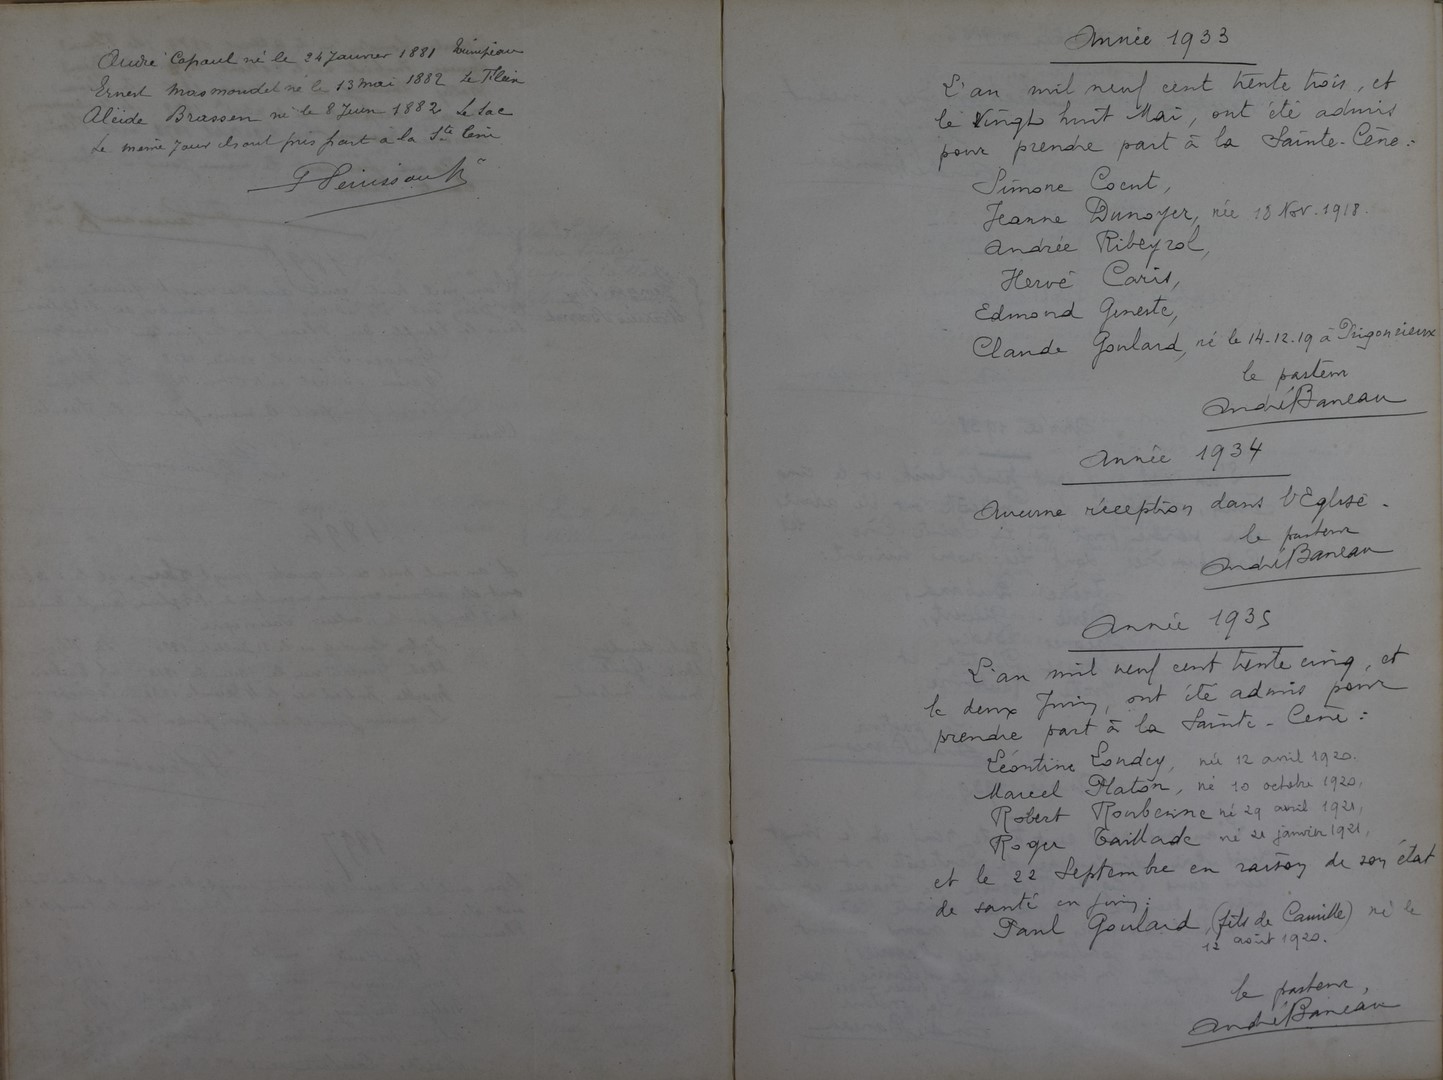 André Capaul né le 24 Janvier 1881
Ernest Masmoudet né le 13 mai 1882 Le Flein
Alcide Brassem né le 8 Juin 1882 Le Lac
Le même jour ils ont pris part à la Ste Cène
Année 1933
L'an mil neuf cent trente trois, et
le Vingt huit Mai, ont été admis
pour prendre part à la Sainte-Cène :
Simone Cocut,
Jeanne Dunoyer, née 18 Nov. 1918.
Andrée Ribeyrol,
Hervé Caris,
Edmond Geneste,
Claude Goulard, né le 14-12-19 à Prigonrieux
le pasteur
André Baneau
Année 1934
Aucune réception dans l'Eglise.
le pasteur
André Baneau
Année 1935
L'an mil neuf cent trente cinq, et
le deux Juin, ont été admis pour
prendre part à la Sainte-Cène :
Léontine Londey, née 12 avril 1920.
Marcel Platon, né 10 octobre 1920,
Robert Roubenne né 29 avril 1921,
Roger Taillade né 21 janvier 1921,
et le 22 Septembre en raison de son état
de santé en juin :
Paul Goulard, (fils de Camille) né le
12 août 1920.
le pasteur,
André Baneau